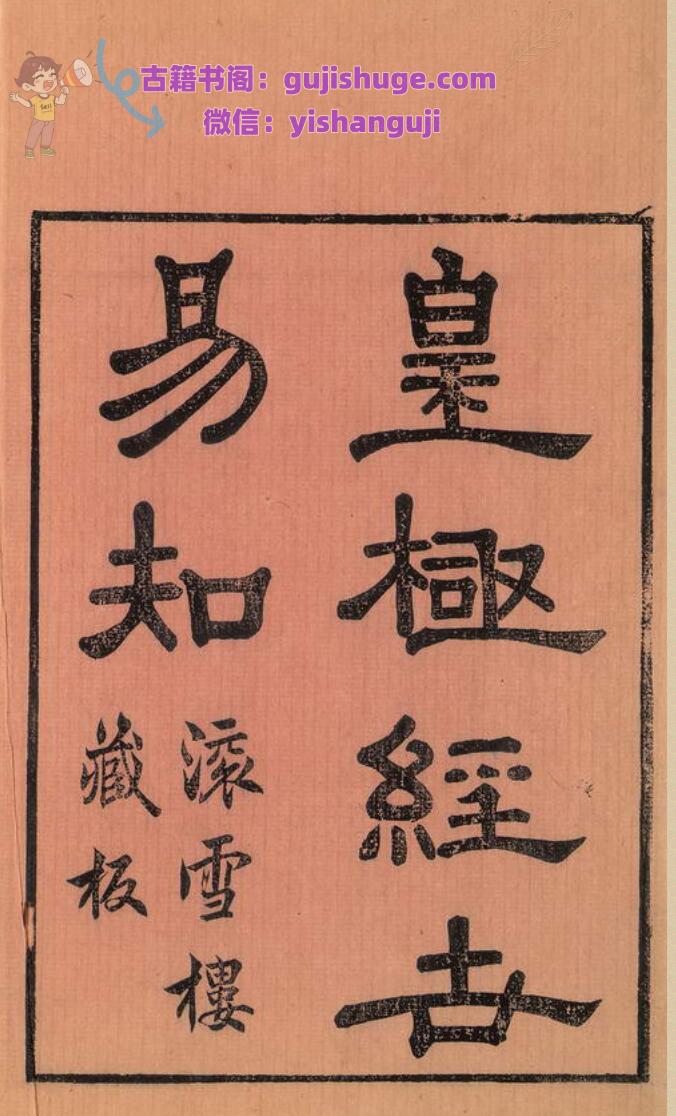 古籍书阁：gujishuge.com
微信：yishanguji
Sell
皇極經世
易知
滚雪樓
藏板